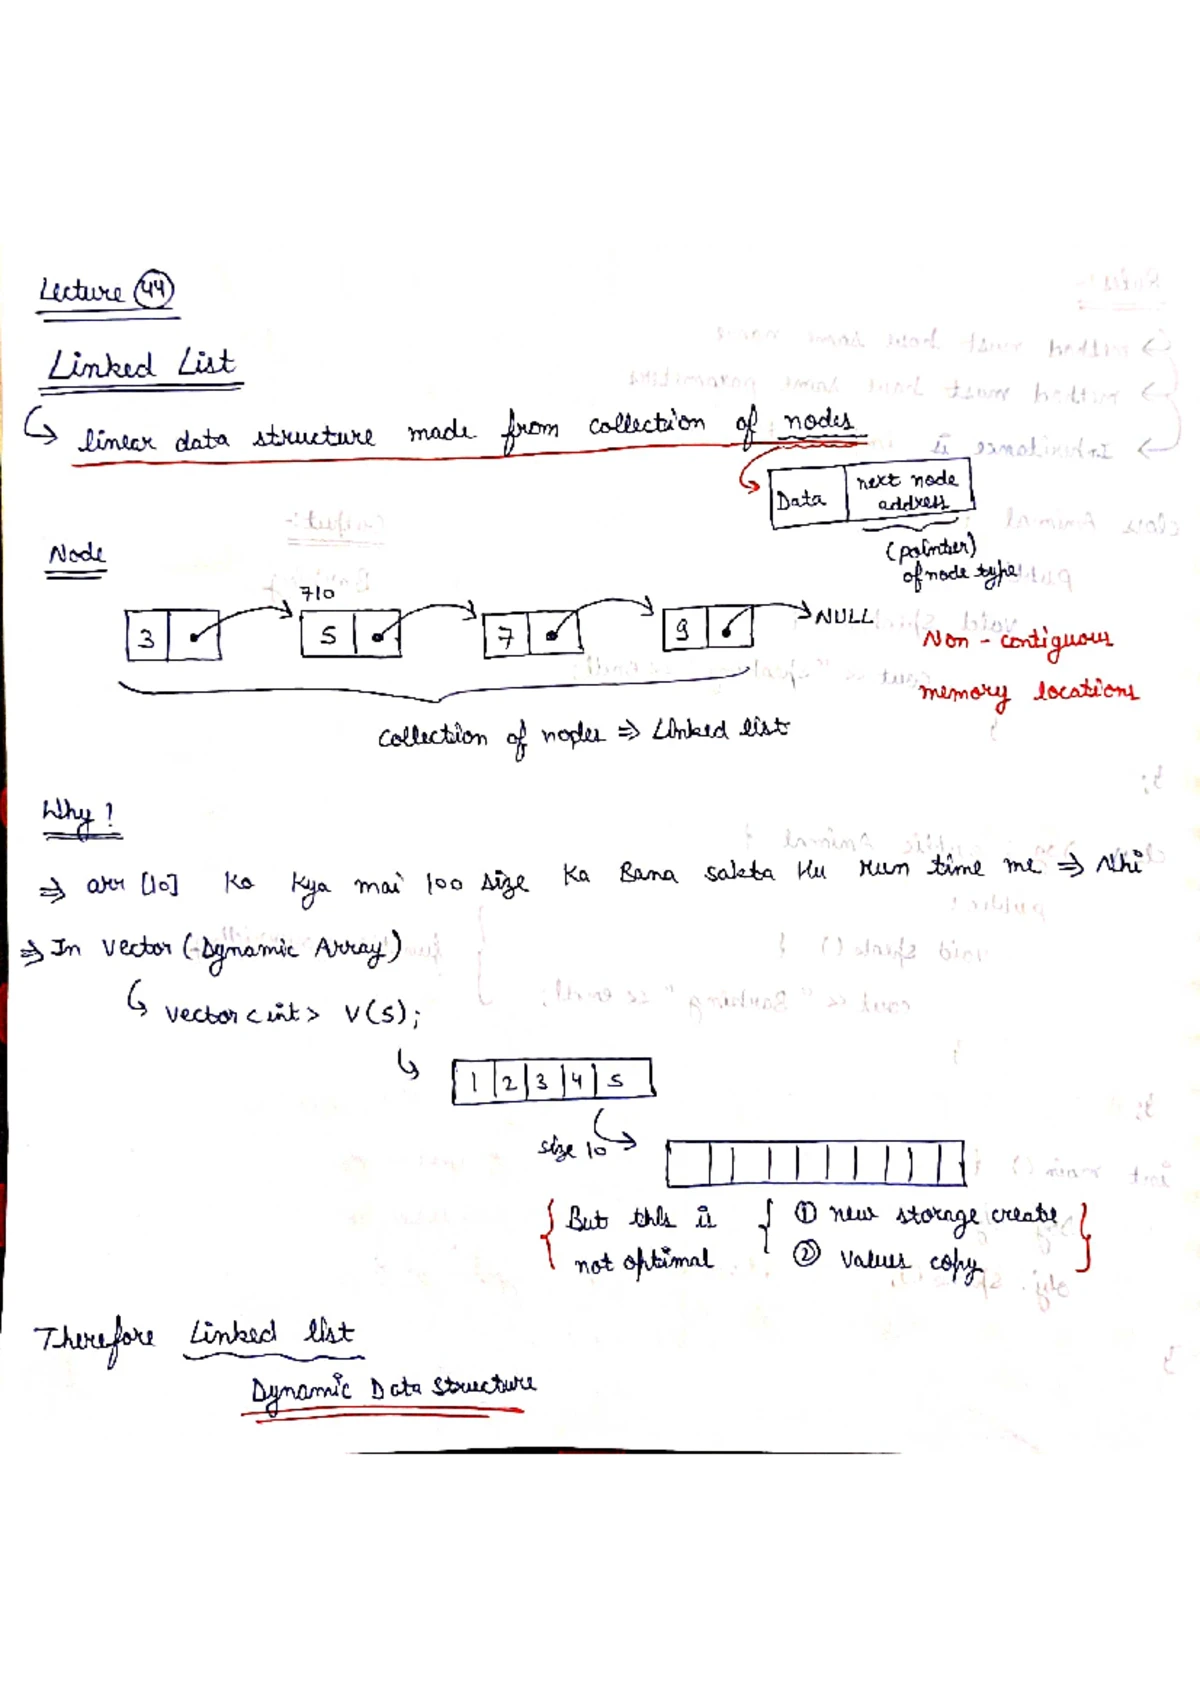 Lecture 44
Linked List
linear data structure made from collection of nodes
Data
next node
address
(pointer)
of node type
Node
710
3
5
7
9
NULL
Non - contiguous
memory locations
collection of nodes ⇒ Linked list
Why ?
⇒ arr [10] Ko Kya mai 100 size Ka Bana sakta Hu run time me ⇒ Nhi
⇒ In vector (Dynamic Array)
vector<int> V(5);
1 2 3 4 5
size 10
But this is
not optimal
① new storage create
② values copy
Therefore Linked list
Dynamic Data Structure